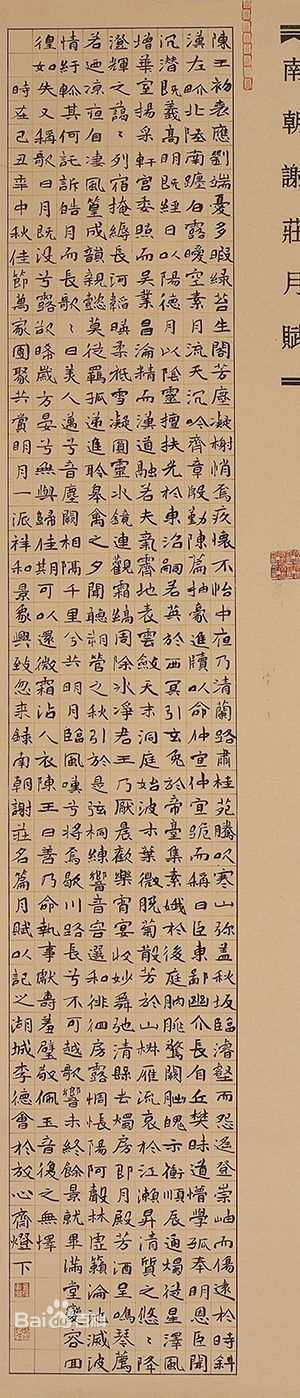 南朝謝莊月賦
陳王初喪應劉端憂多暇綠苔生閣芳塵凝榭悄焉疚懷不怡中夜乃清蘭路肅桂苑騰吹寒山弥蓋秋坂臨濬壑而怨遥登崇岫而傷遠於時斜
漢左界北陸南躔白露曖空素月流天沉吟齊章殷勤陳篇抽毫進牘以命仲宣仲宣跪而稱曰臣東鄙幽介長自丘樊昧道懵學孤奉明恩臣聞
沉潛既義高明既經日以陽德月以陰靈擅扶光於東沼嗣若英於西冥引玄兔於帝臺集素娥於後庭朒朓驚闕朏魄示衡順辰通燭從星澤風
增華室揚采軒宮委照而吳業昌淪精而漢道融若夫氣霽地表雲斂天末洞庭始波木葉微脫菊散芳於山椒雁流哀於江瀨昇清質之悠悠降
澄輝之藹藹列宿掩縟長河韜暎柔祇雪凝圓靈水鏡連觀霜縞周除冰凈君王乃厭晨歡樂宵宴收妙舞弛清縣去燭房即月殿芳酒登鳴琴薦
若廼凉夜自凄風篁成韻親懿莫從羈孤遞進聆皋禽之夕聞聽朔管之秋引於是弦桐練響音容選和徘徊房露惆悵陽阿聲林虛籟淪池滅波
情紆軫其何託訴皓月而長歌歌曰美人邁兮音塵闕相隔千里兮共明月臨風嘆兮將焉歇川路長兮不可越歌響未終餘景就畢滿堂變容回
徨如失又稱歌曰月既沒兮露欲晞歲方晏兮無與歸佳期可以還微霜沾人衣陳王曰善乃命執事獻壽羞璧敬佩玉音復之無斁
時在己丑年中秋佳節萬家團聚共賞明月一派祥和景象興致忽來錄南朝謝莊名篇月賦以記之湖城李德會於放心齋燈下
Bai百科